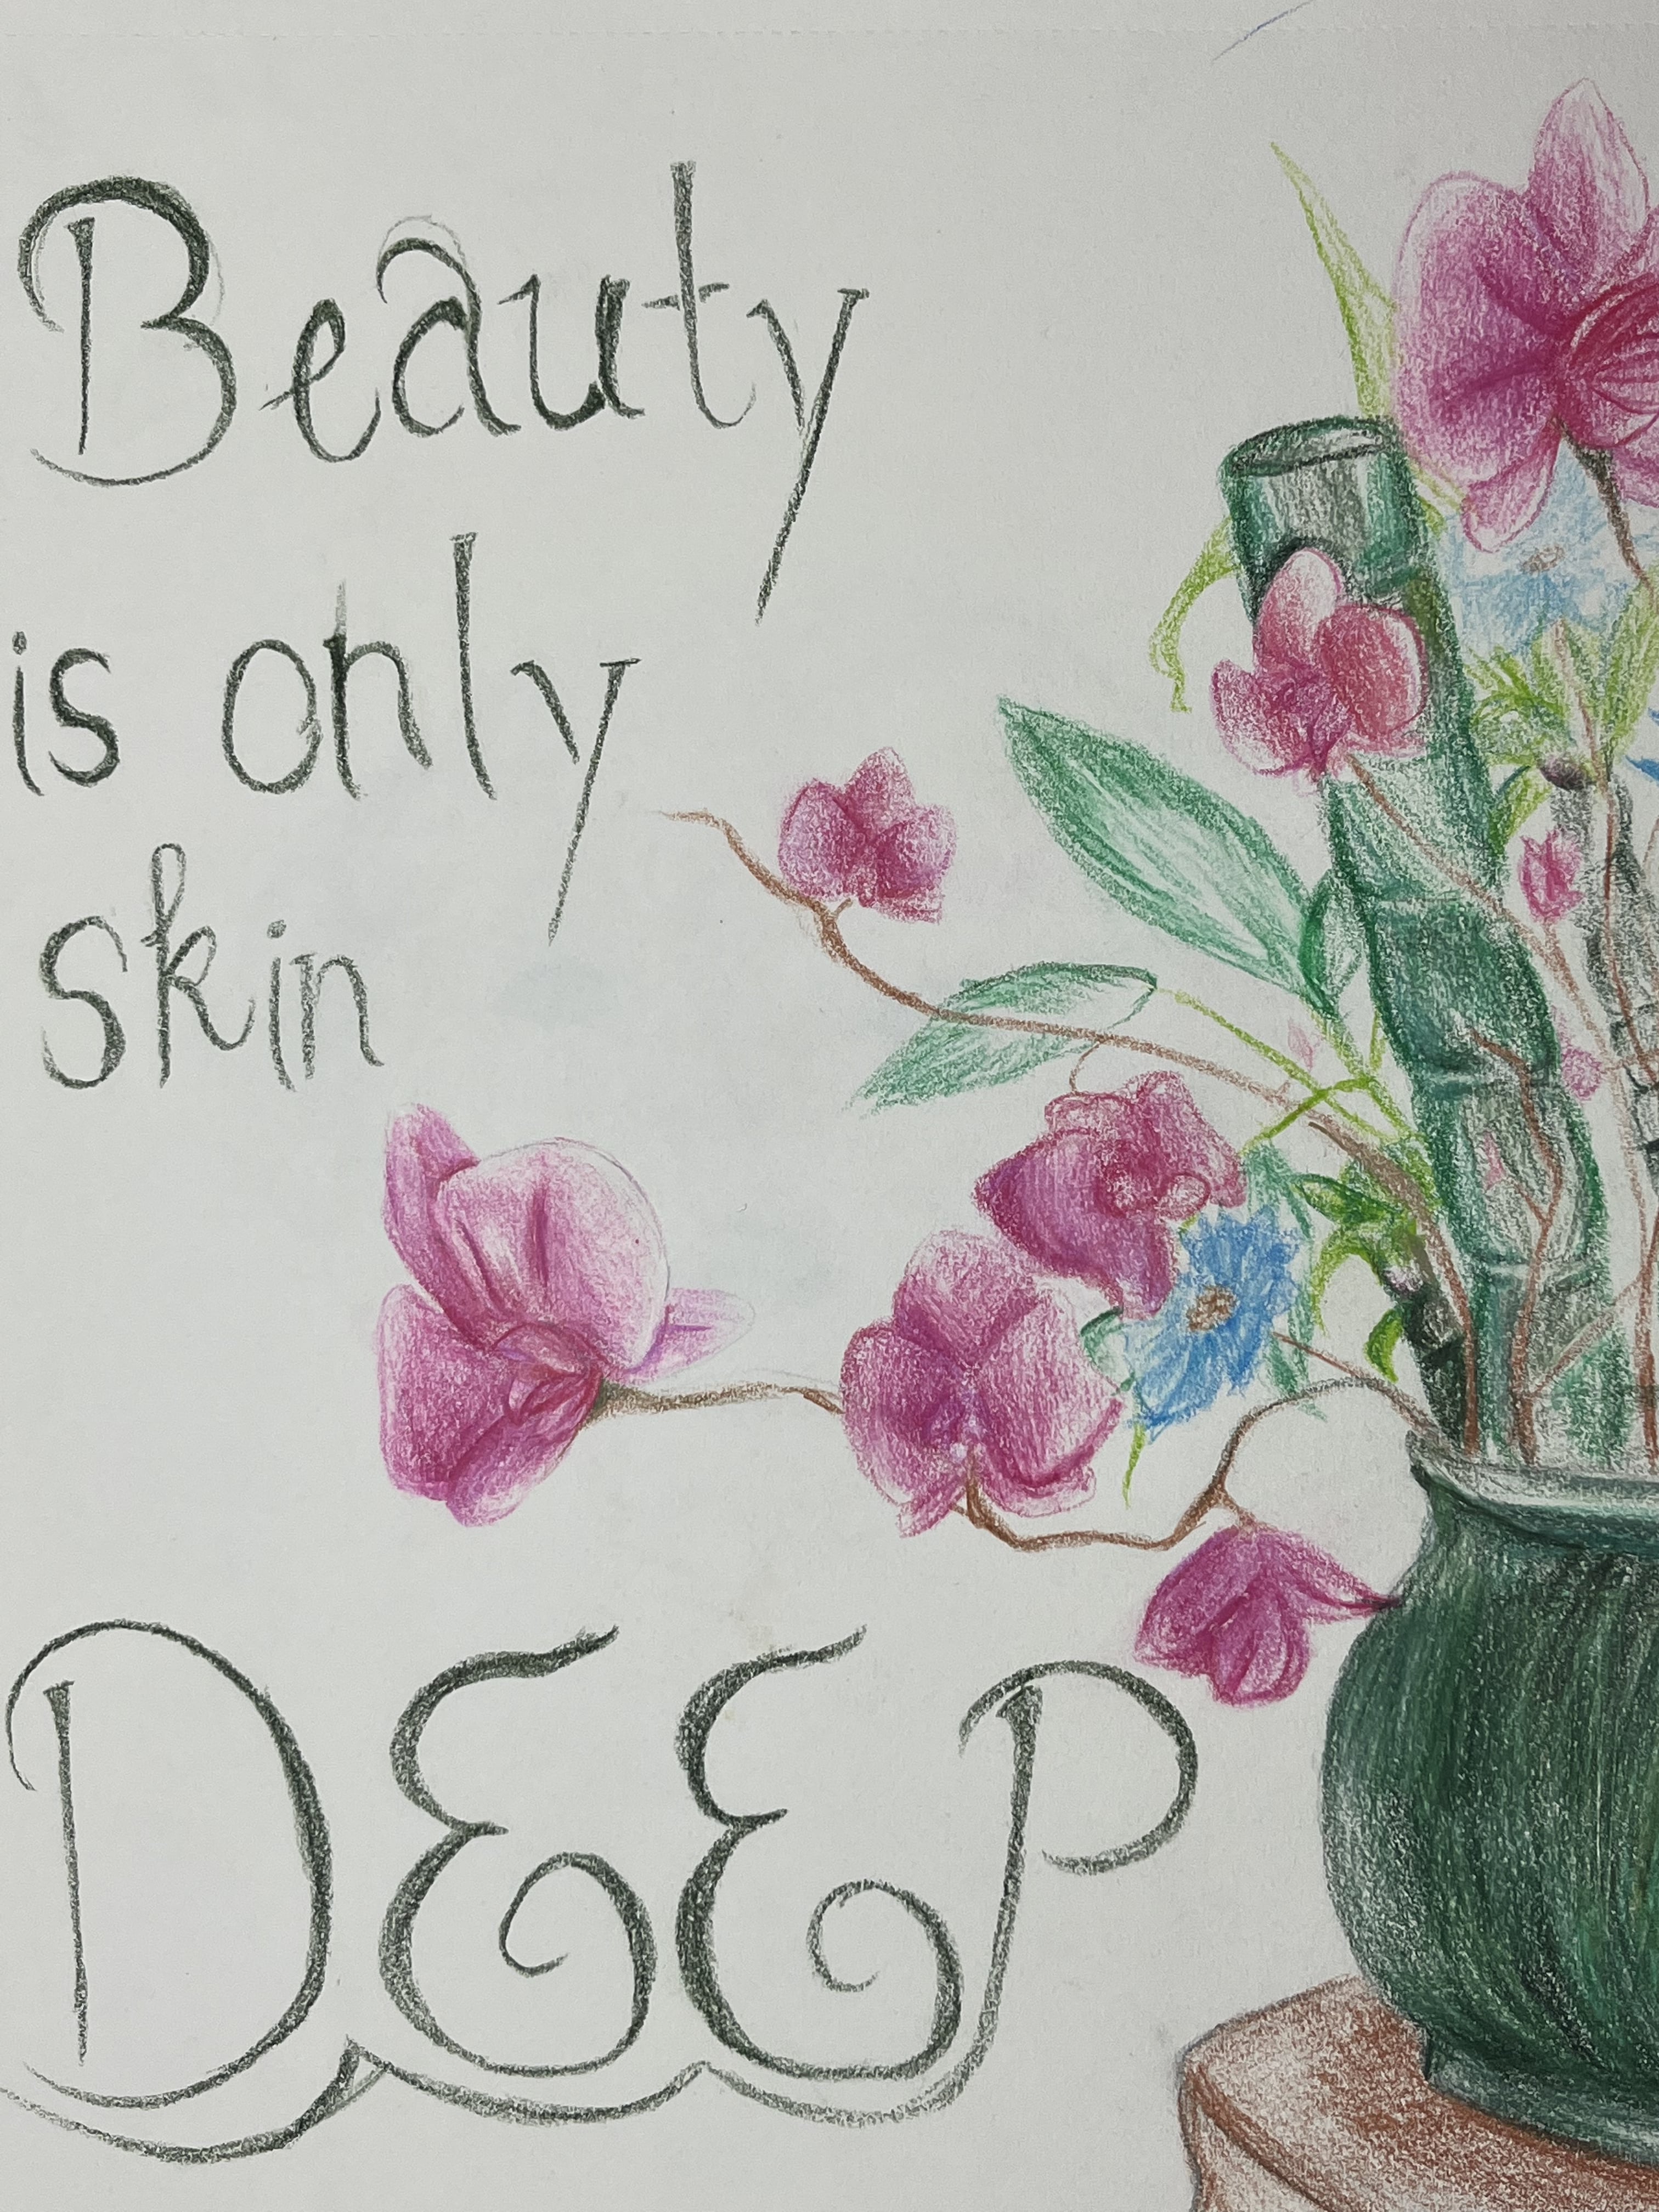 Beauty
is only
skin
DEEP